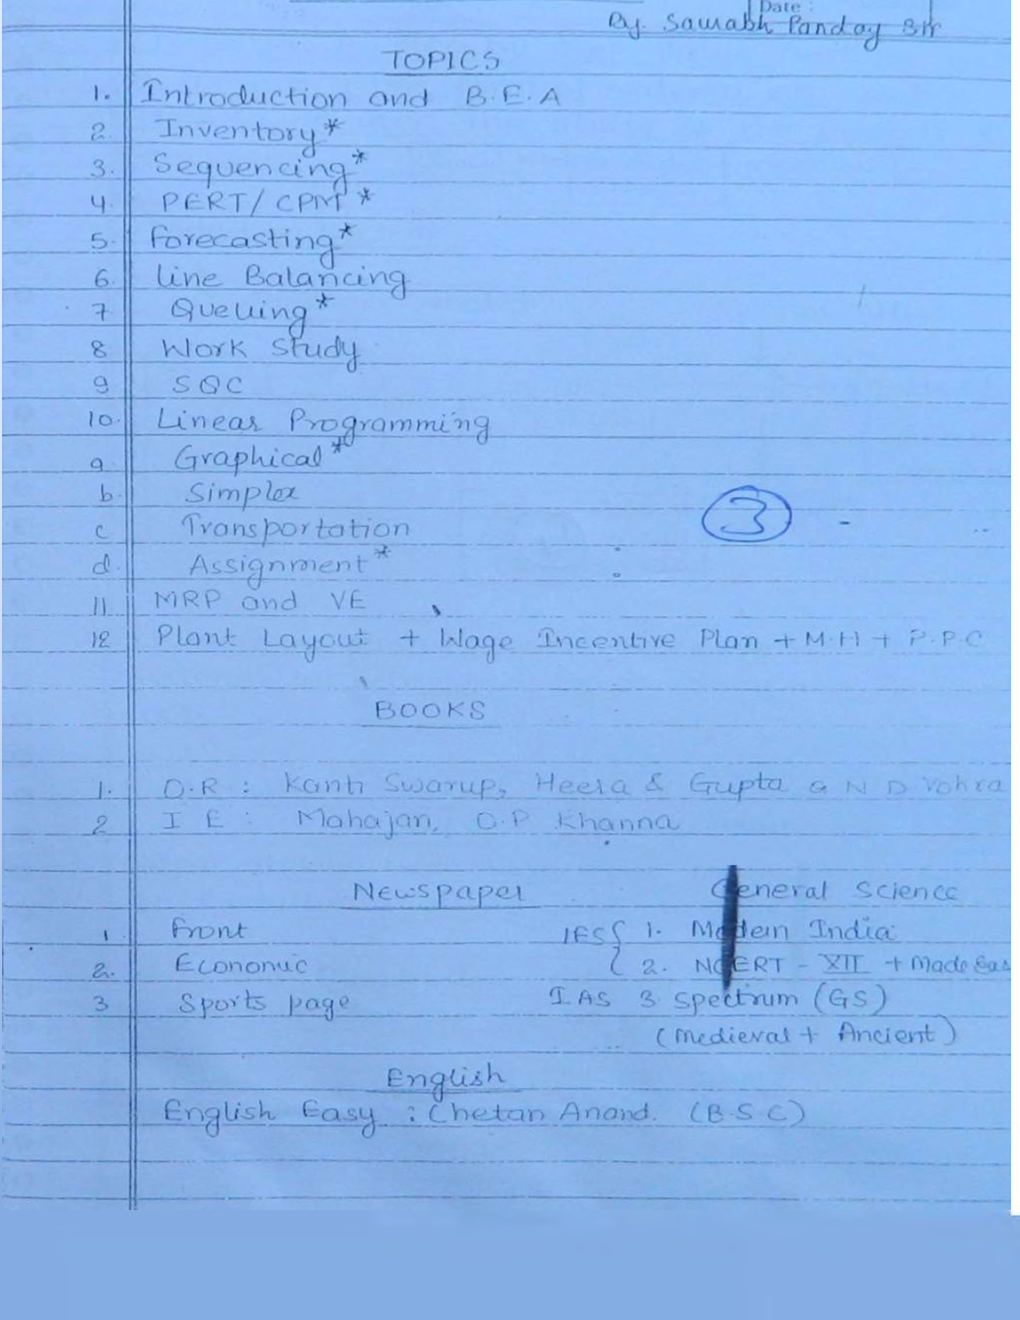 Date :
By. Saurabh Panday Sir
TOPICS
1. Introduction and B.E.A
2. Inventory*
3. Sequencing*
4. PERT/CPM*
5. Forecasting*
6. Line Balancing
7 Queuing*
8 Work Study
9 SQC
10. Linear Programming
a Graphical*
b. Simplex
c Transportation
d. Assignment*
11 MRP and VE
12 Plant Layout + Wage Incentive Plan + M.H + P.P.C
3
BOOKS
1. O.R : Kanti Swarup, Heera & Gupta & N D Vohra
2 I E : Mahajan, O.P Khanna
Newspaper General Science
1 Front IES { 1. Modern India
2. Economic 2. NCERT - XII + Made Eas
3 Sports page IAS 3 Spectrum (GS)
(Medieval + Ancient)
English
English Easy : Chetan Anand. (B.S.C)